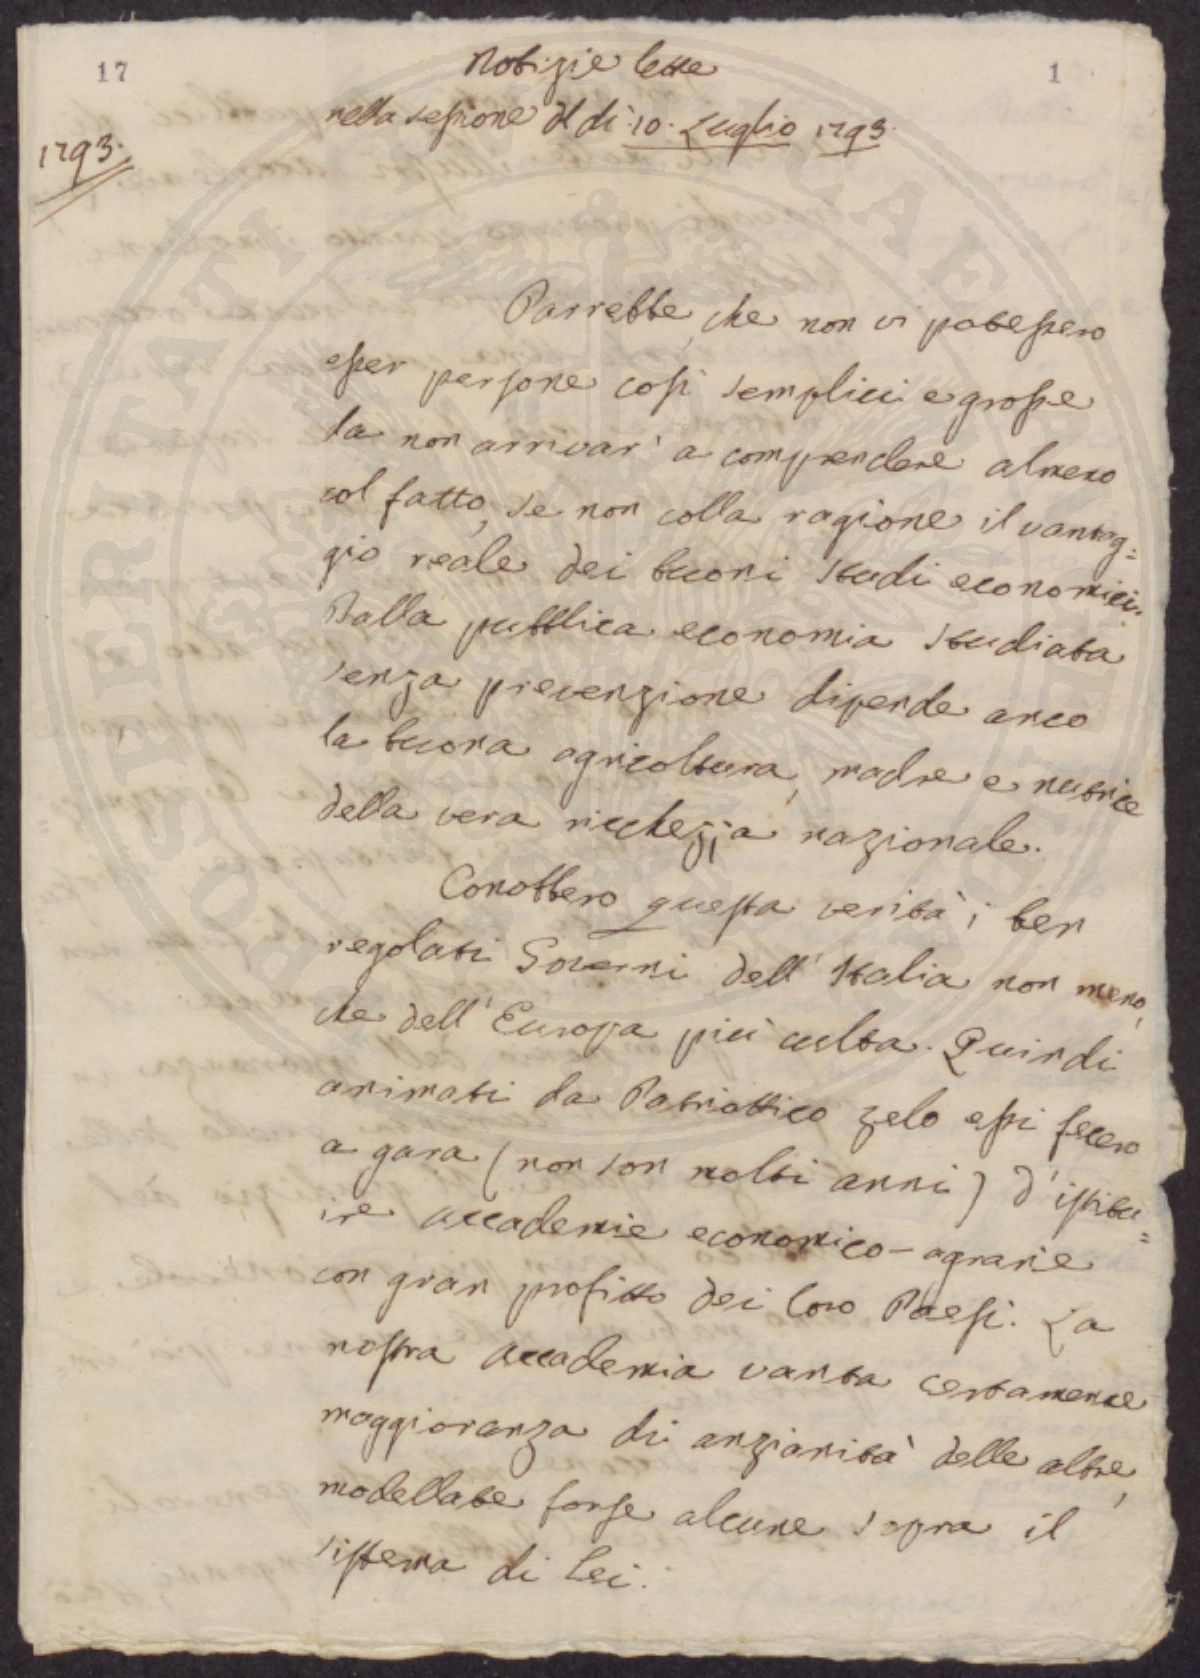 17
1
Notizie lette
nella sessione del dì 10. Luglio 1793.
1793.
Parrebbe, che non vi potessero
esser persone così semplici e grosse
da non arrivar' a comprendere almeno
col fatto, se non colla ragione il vantag=
gio reale dei buoni studi economici.
Dalla pubblica economia studiata
senza prevenzione dipende anco
la buona agricoltura, madre e nutrice
della vera ricchezza nazionale.
Conobbero questa verità i ben
regolati Governi dell'Italia non meno,
che dell'Europa più culta. Quindi
animati da Patriottico zelo essi fecero
a gara (non son molti anni) d'istitu=
ire accademie economico-agrarie
con gran profitto dei loro Paesi. La
nostra Accademia vanta certamente
maggioranza di anzianità delle altre,
modellate forse alcune sopra il
sistema di lei.
GEORGOPHILORUM
PROSPERITATI PUBLICAE AUGENDAE